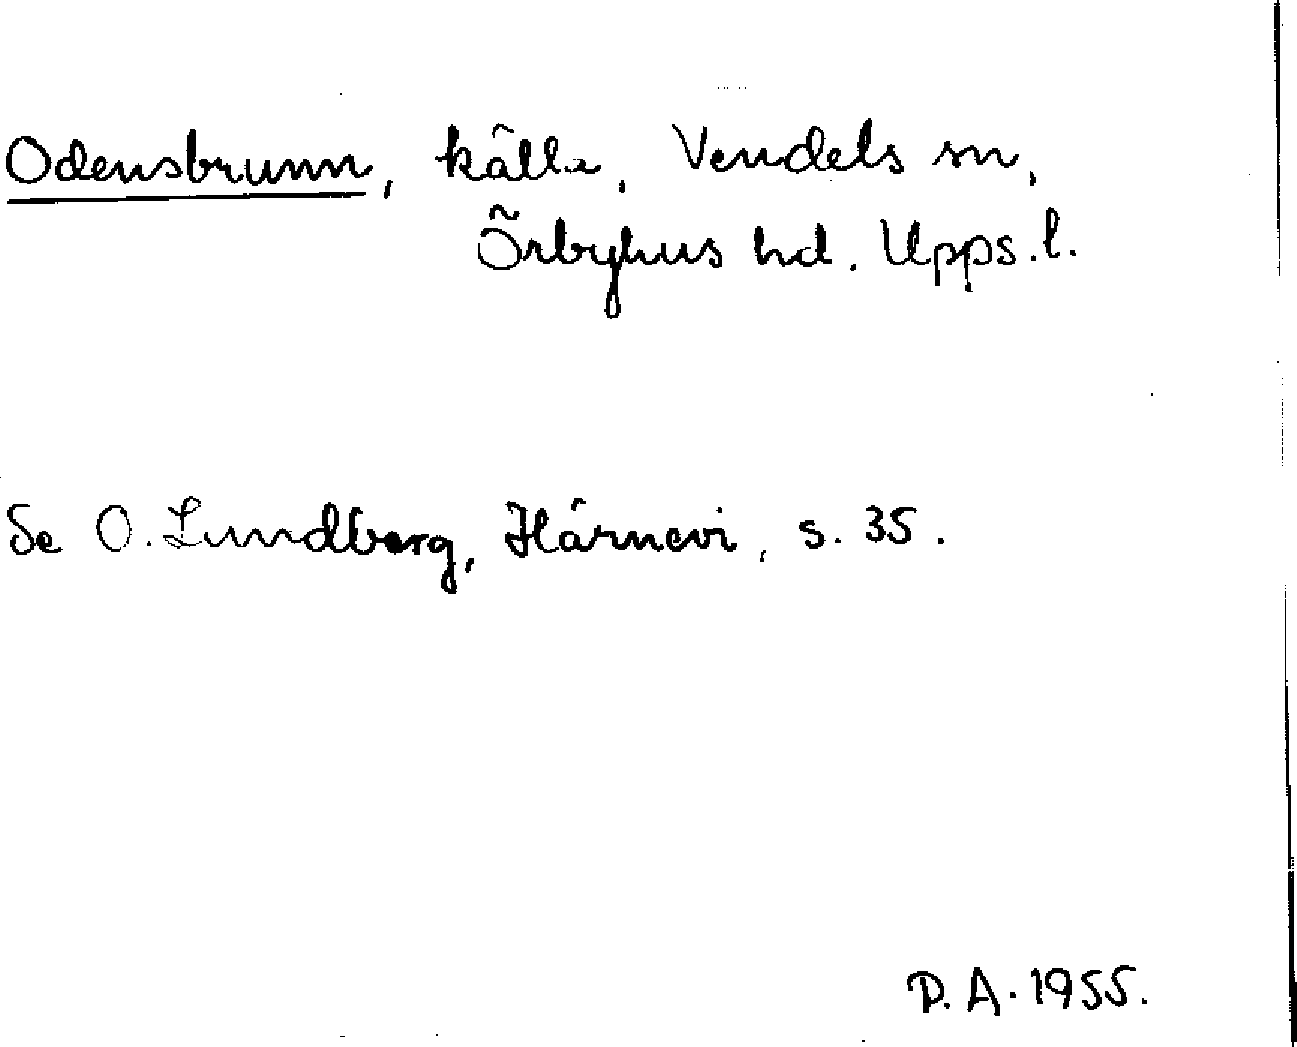 Odensbrunn, källa, Vendels sn,
Örbyhus hd. Upps.l.
Se O. Lundberg, Härnevi, s. 35.
D.A. 1955.